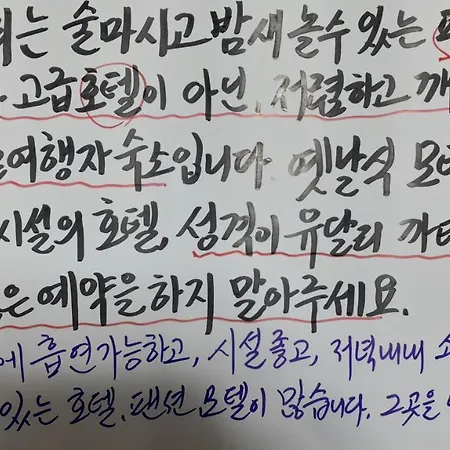 는 술마시고 밤새 놀수 있는
고급호텔이 아닌, 저렴하고 깨
여행자 숙소입니다. 옛날식 모
시설의 호텔, 성격이 유달리 까
은 예약을 하지 말아주세요.
에 흡연가능하고, 시설좋고, 저녁내내
있는 호텔, 팬션 모텔이 많습니다. 그곳을